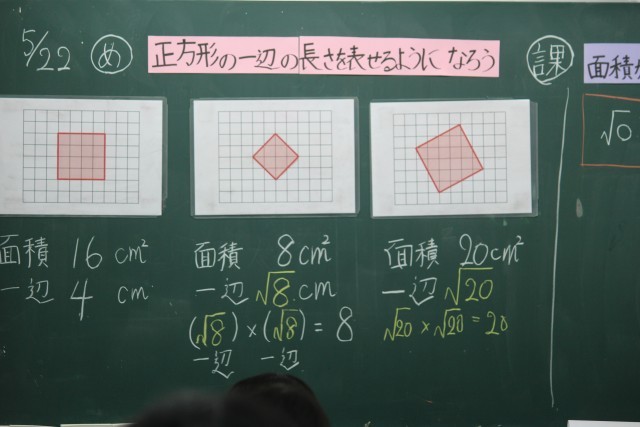 5/22 め 正方形の一辺の長さを表せるように なろう 課
面積
√0
面積 16 cm²
一辺 4 cm
面積 8cm²
一辺 √8 cm
(√8) × (√8) = 8
一辺 一辺
面積 20cm²
一辺 √20
√20 × √20 = 20